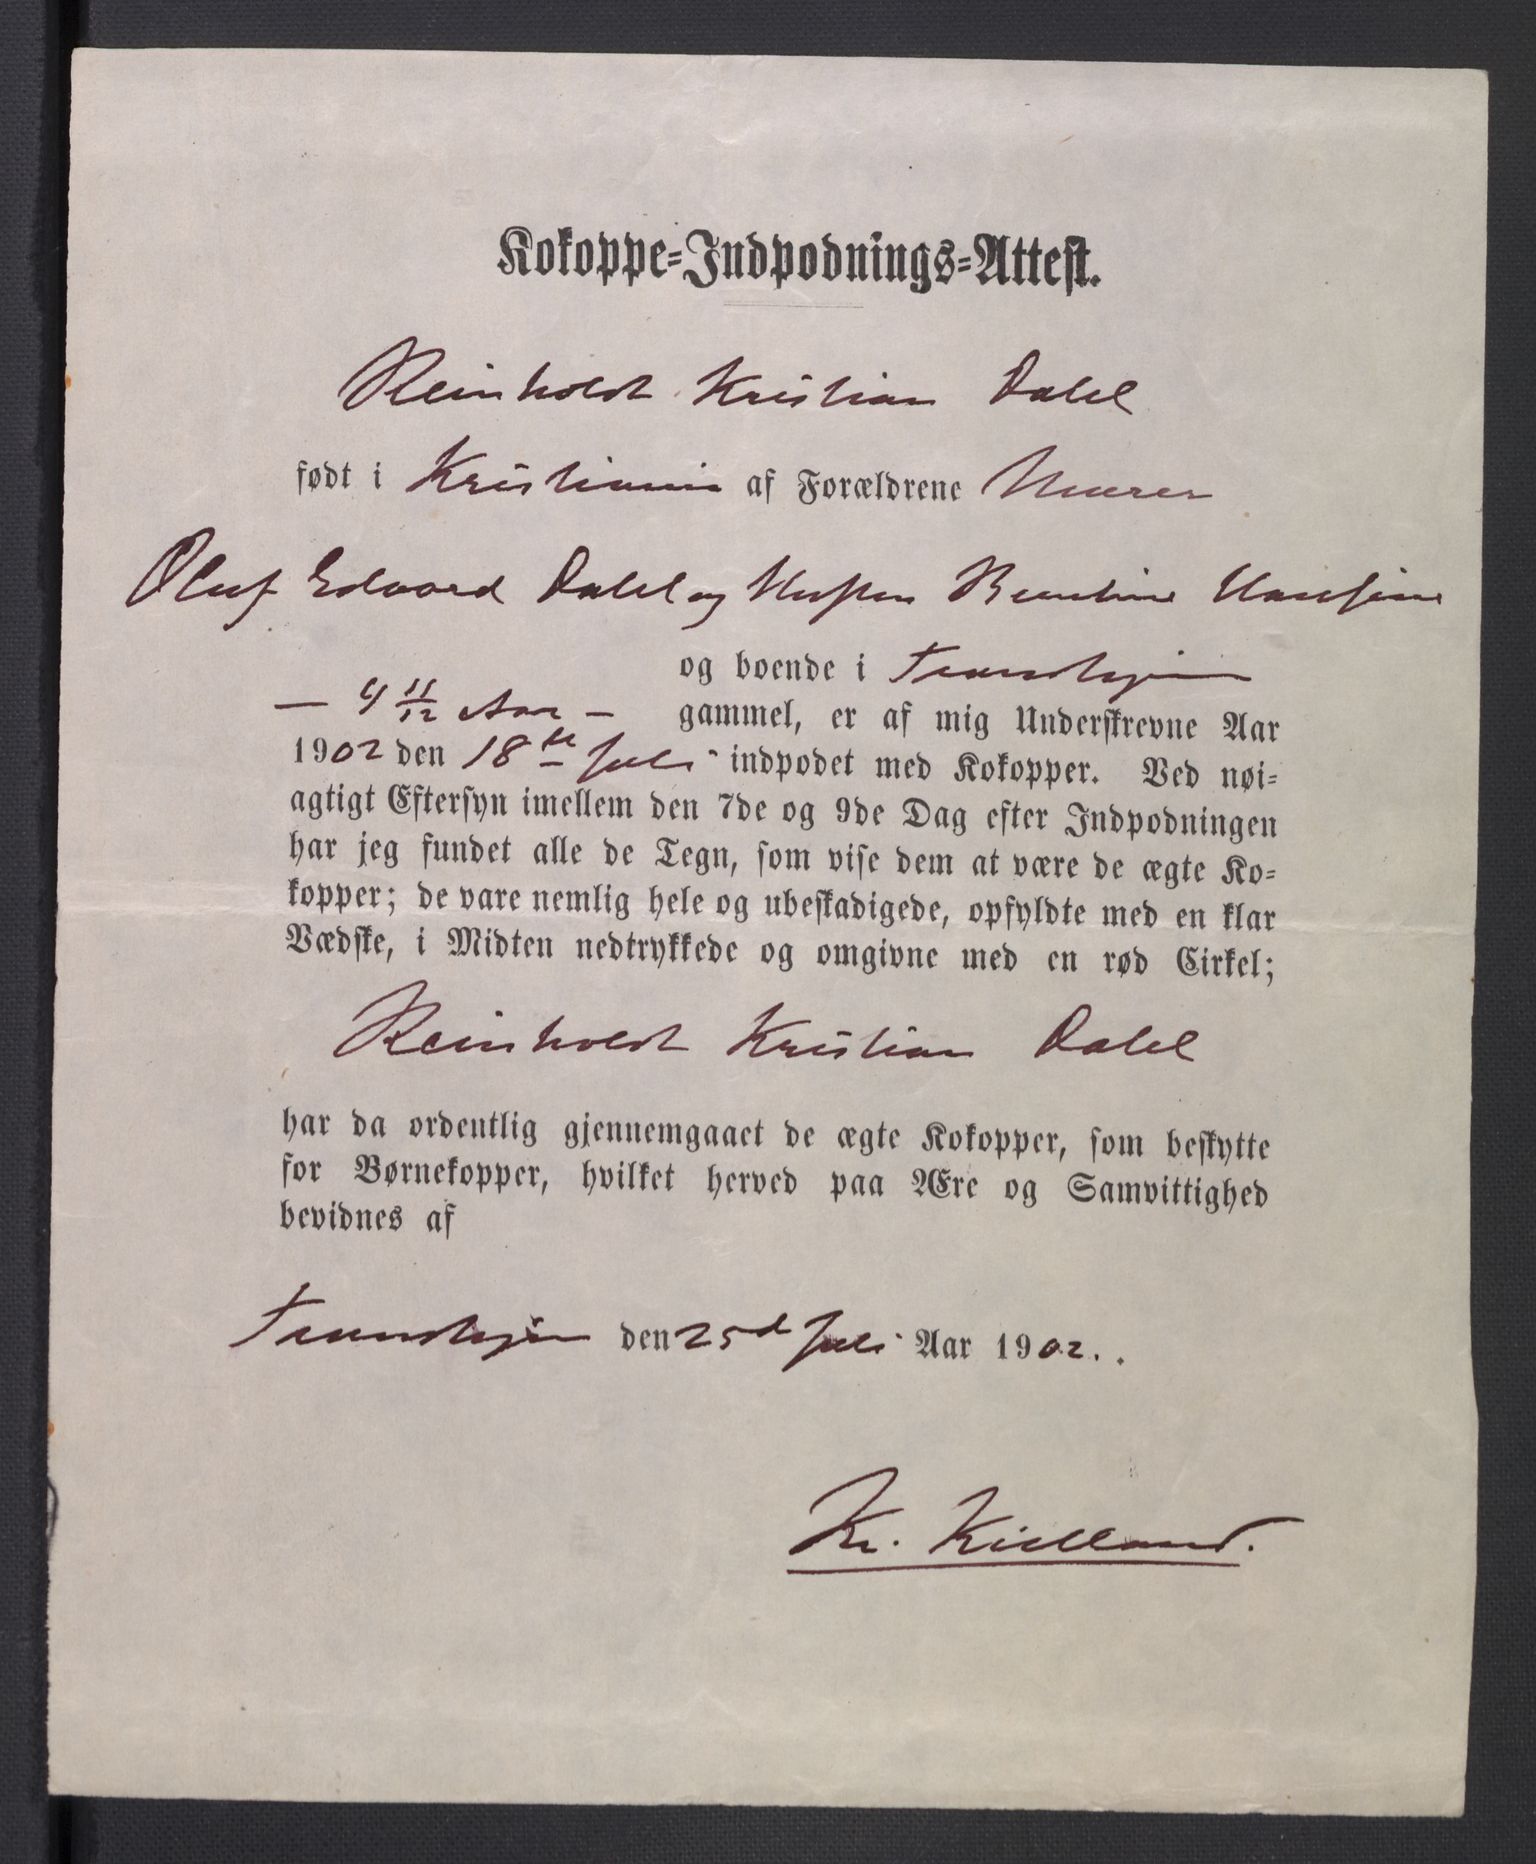 Kokoppe-Indpodnings-Attest.
Reinholdt Kristian Dahl
født i Kristiania af Forældrene Murer
Oluf Edvard Dahl og Hustru Berntine
og boende i Trondhjem
— 4 11/12 Aar — gammel, er af mig Underskrevne Aar
1902 den 18de Juli indpodet med Kokopper. Ved nøi-
agtigt Eftersyn imellem den 7de og 9de Dag efter Indpodningen
har jeg fundet alle de Tegn, som vise dem at være de ægte Ko-
kopper; de vare nemlig hele og ubeskadigede, opfyldte med en klar
Vædske, i Midten nedtrykkede og omgivne med en rød Cirkel;
Reinholdt Kristian Dahl
har da ordentlig gjennemgaaet de ægte Kokopper, som beskytte
for Børnekopper, hvilket herved paa Ære og Samvittighed
bevidnes af
Trondhjem den 25d Juli Aar 1902..
Kr. Kielland.